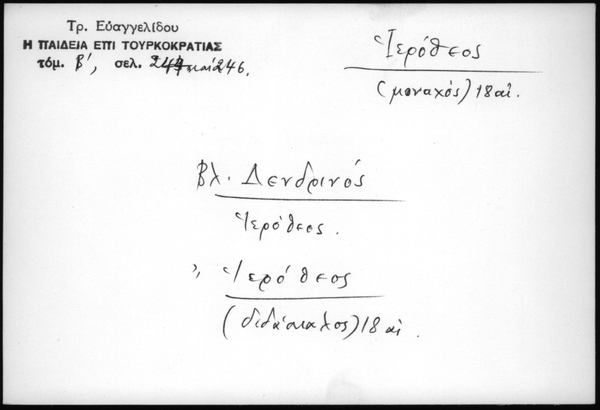 Τρ. Εὐαγγελίδου
Η ΠΑΙΔΕΙΑ ΕΠΙ ΤΟΥΡΚΟΚΡΑΤΙΑΣ
τόμ. β', σελ. καί 246.
Ἱερόθεος
(μοναχός) 18 αἰ.
Βλ. Δενδρινός
Ἱερόθεος.
,, Ἱερόθεος
(διδάσκαλος) 18 αἰ.